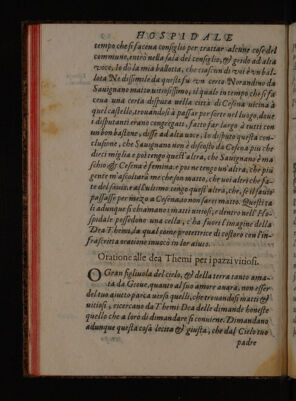 HOSPIDALE
tempo che si faceua consiglio per trattar alcune cose del
commune, entrò nella sala del consiglio, & gridò ad alta
voce, Io dò la mia ballotta, che ciascun di vui è vn bal
lota Ne dissimile da questi fù vn certo Norandino da
Sauignano matto vitiosissimo, il quale in tempo che si fa
ceua una certa disputa nella città di Cesena vicina à
quel castello, trouandosi à passar per forte nel luogo, doue i
disputanti erano congregati, fatto far largo à tutti con
un bon bastone, disse ad alta voce, Io disputo questa con-
clusione, che Sauignano non è discosto da Cesena più che
dieci miglia e poi tengo quest'altra, che Sauignano è ma
schio & Cesena è femina, e poi ne tengo un'altra, che più
gente m'ascoltarà me che son matto, che voi altri che fa-
te del sauio, e all'ultimo tengo quest'altra, che, se il sauio
passasse per mezo a Cesena, io non sarei matto. Questi ta
li adunque si chiamano matti vitiosi, e dentro nell'Ho-
spidale possedono una cella, c'ha fuori l'imagine della
Dea Themi, da qual come protettrice di costoro con l'in-
frascritta oratione inuocò in lor aiuto.
Oratione alle dea Themi per i pazzi vitiosi.
O Gran figliuola del cielo, & della terra tanto ama-
ta da Gioue, quanto al suo amore auara, non esser
del tuo aiuto parca uerso quelli, che trouandosi matti &
vitiosi, ricercano da Themi Dea delle dimande honeste
quello che a loro di dimandare si conuiene. Dimandano
adunque questa cosa lecita & giusta, che dal Cielo tuo
padre